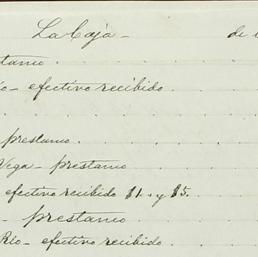 La Caja – de
stamo .
io – efectivo recibido .
prestamo .
Vega – prestamo
efectivo recibido $1. y $5.
– prestamo
Rio – efectivo recibido .